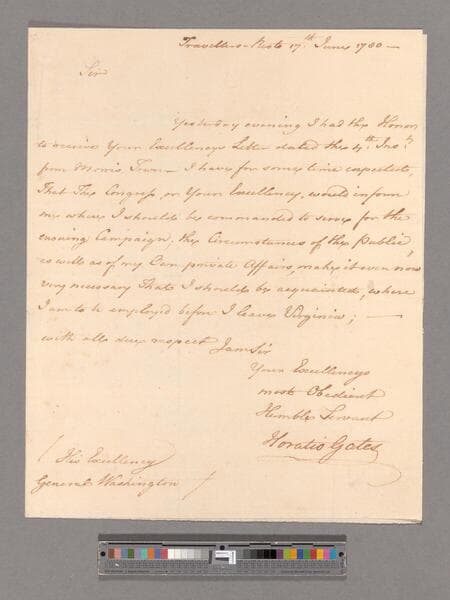 Travellers-Rest 17th June 1780 —
Sir
Yesterday evening I had the Honor
to receive Your Excellencys Letter dated the 4th Inst
from Morris Town — I have for some time expected,
That The Congress, or Your Excellency, would inform
me where I should be commanded to serve for the
ensuing Campaign; the Circumstances of the Public,
as well as of my Own private Affairs, makes it even now
very necessary That I should be acquainted, where
I am to be employ'd before I leave Virginia; —
with all due respect I am Sir
Your Excellencys
most Obedient
Humble Servant
Horatio Gates
His Excellency
General Washington